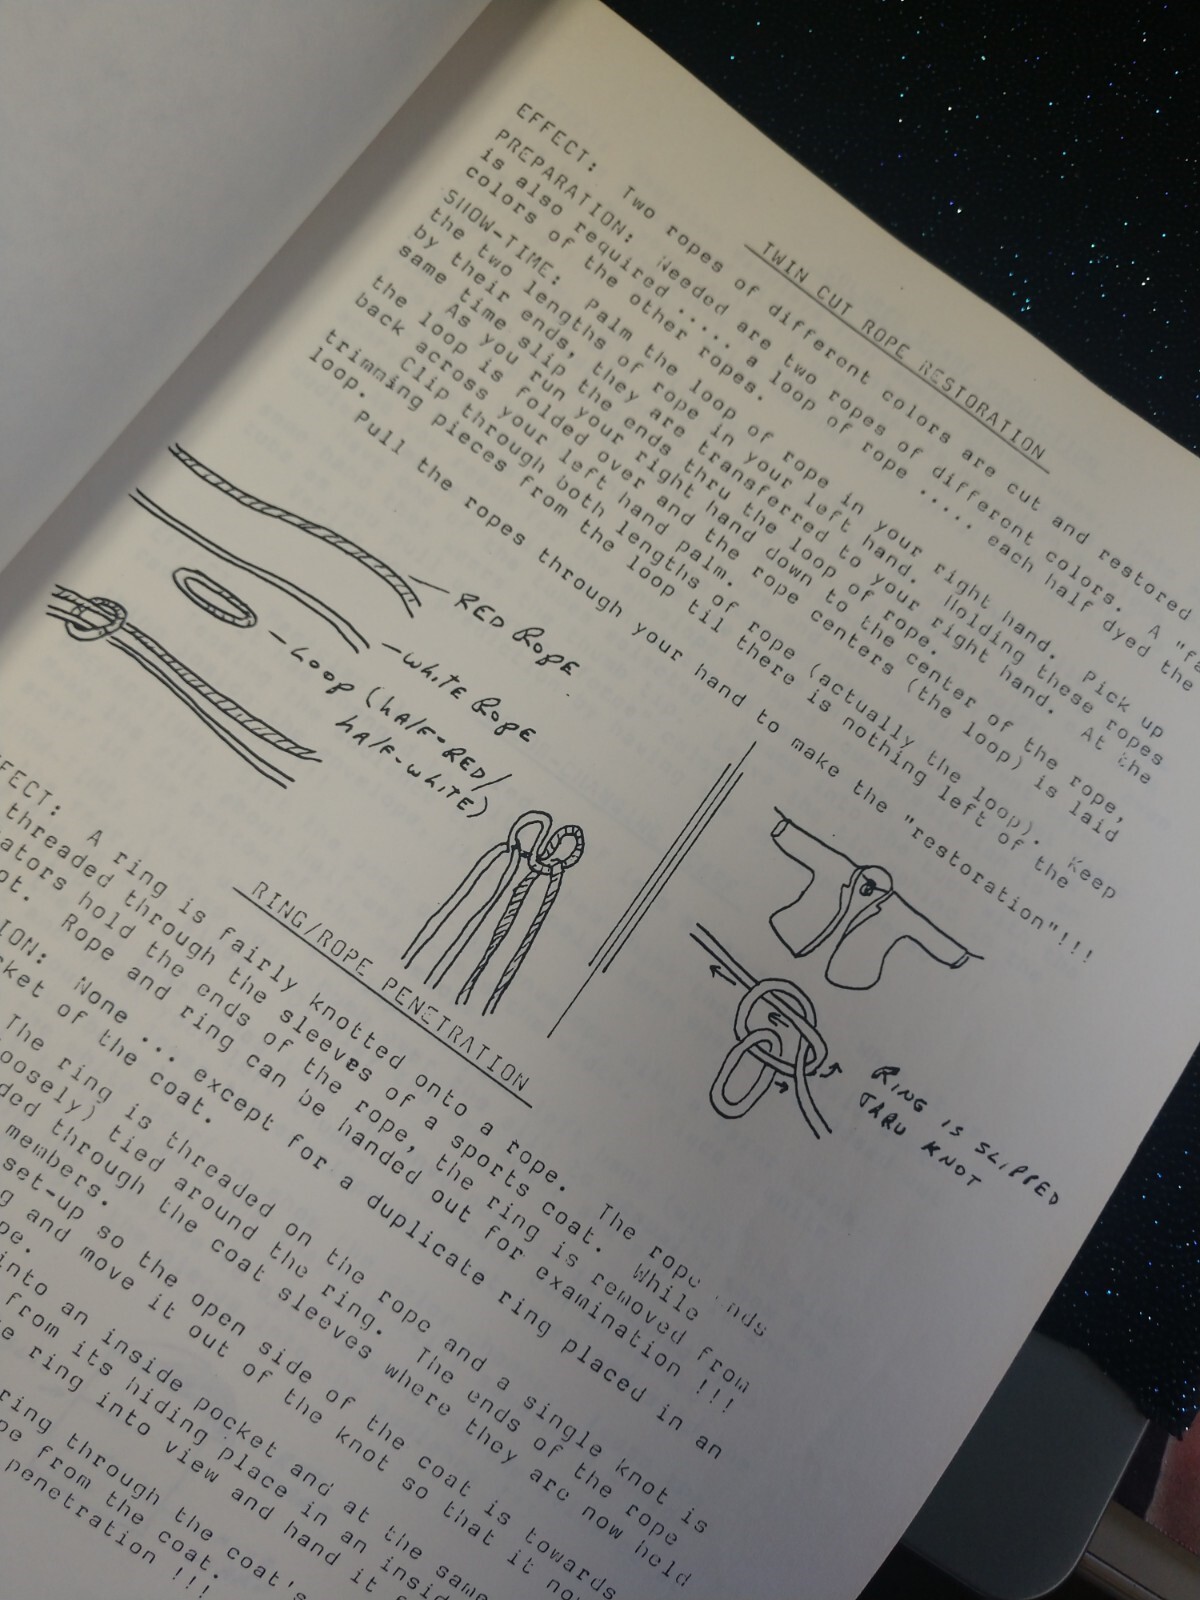 TWIN CUT ROPE RESTORATION
EFFECT: Two ropes of different colors are cut and restored
PREPARATION: Needed are two ropes of different colors. A "fa
is also required ..... a loop of rope ..... each half dyed the
colors of the other ropes.
SHOW-TIME: Palm the loop of rope in your right hand. Pick up
the two lengths of rope in your left hand. Holding these ropes
by their ends, they are transferred to your right hand. At the
same time slip the ends thru the loop of rope.
As you run your right hand down to the center of the rope,
the loop is folded over and the rope centers (the loop) is laid
back across your left hand palm.
Clip through both lengths of rope (actually the loop). Keep
trimming pieces from the loop til there is nothing left of the
loop.
Pull the ropes through your hand to make the "restoration"!!!
RED ROPE
WHITE ROPE
LOOP (HALF-RED/
HALF-WHITE)
RING IS SLIPPED
THRU KNOT
RING/ROPE PENETRATION
FECT: A ring is fairly knotted onto a rope. The rope nds
threaded through the sleeves of a sports coat. While
ators hold the ends of the rope, the ring is removed from
ot. Rope and ring can be handed out for examination !!!
ION: None ... except for a duplicate ring placed in an
cket of the coat.
The ring is threaded on the rope and a single knot is
oosely) tied around the ring. The ends of the rope
ded through the coat sleeves where they are now held
members.
set-up so the open side of the coat is towards
g and move it out of the knot so that it no
pe.
into an inside pocket and at the same
from its hiding place in an insid
e ring into view and hand it
ring through the coat's
pe from the coat.
penetration !!!